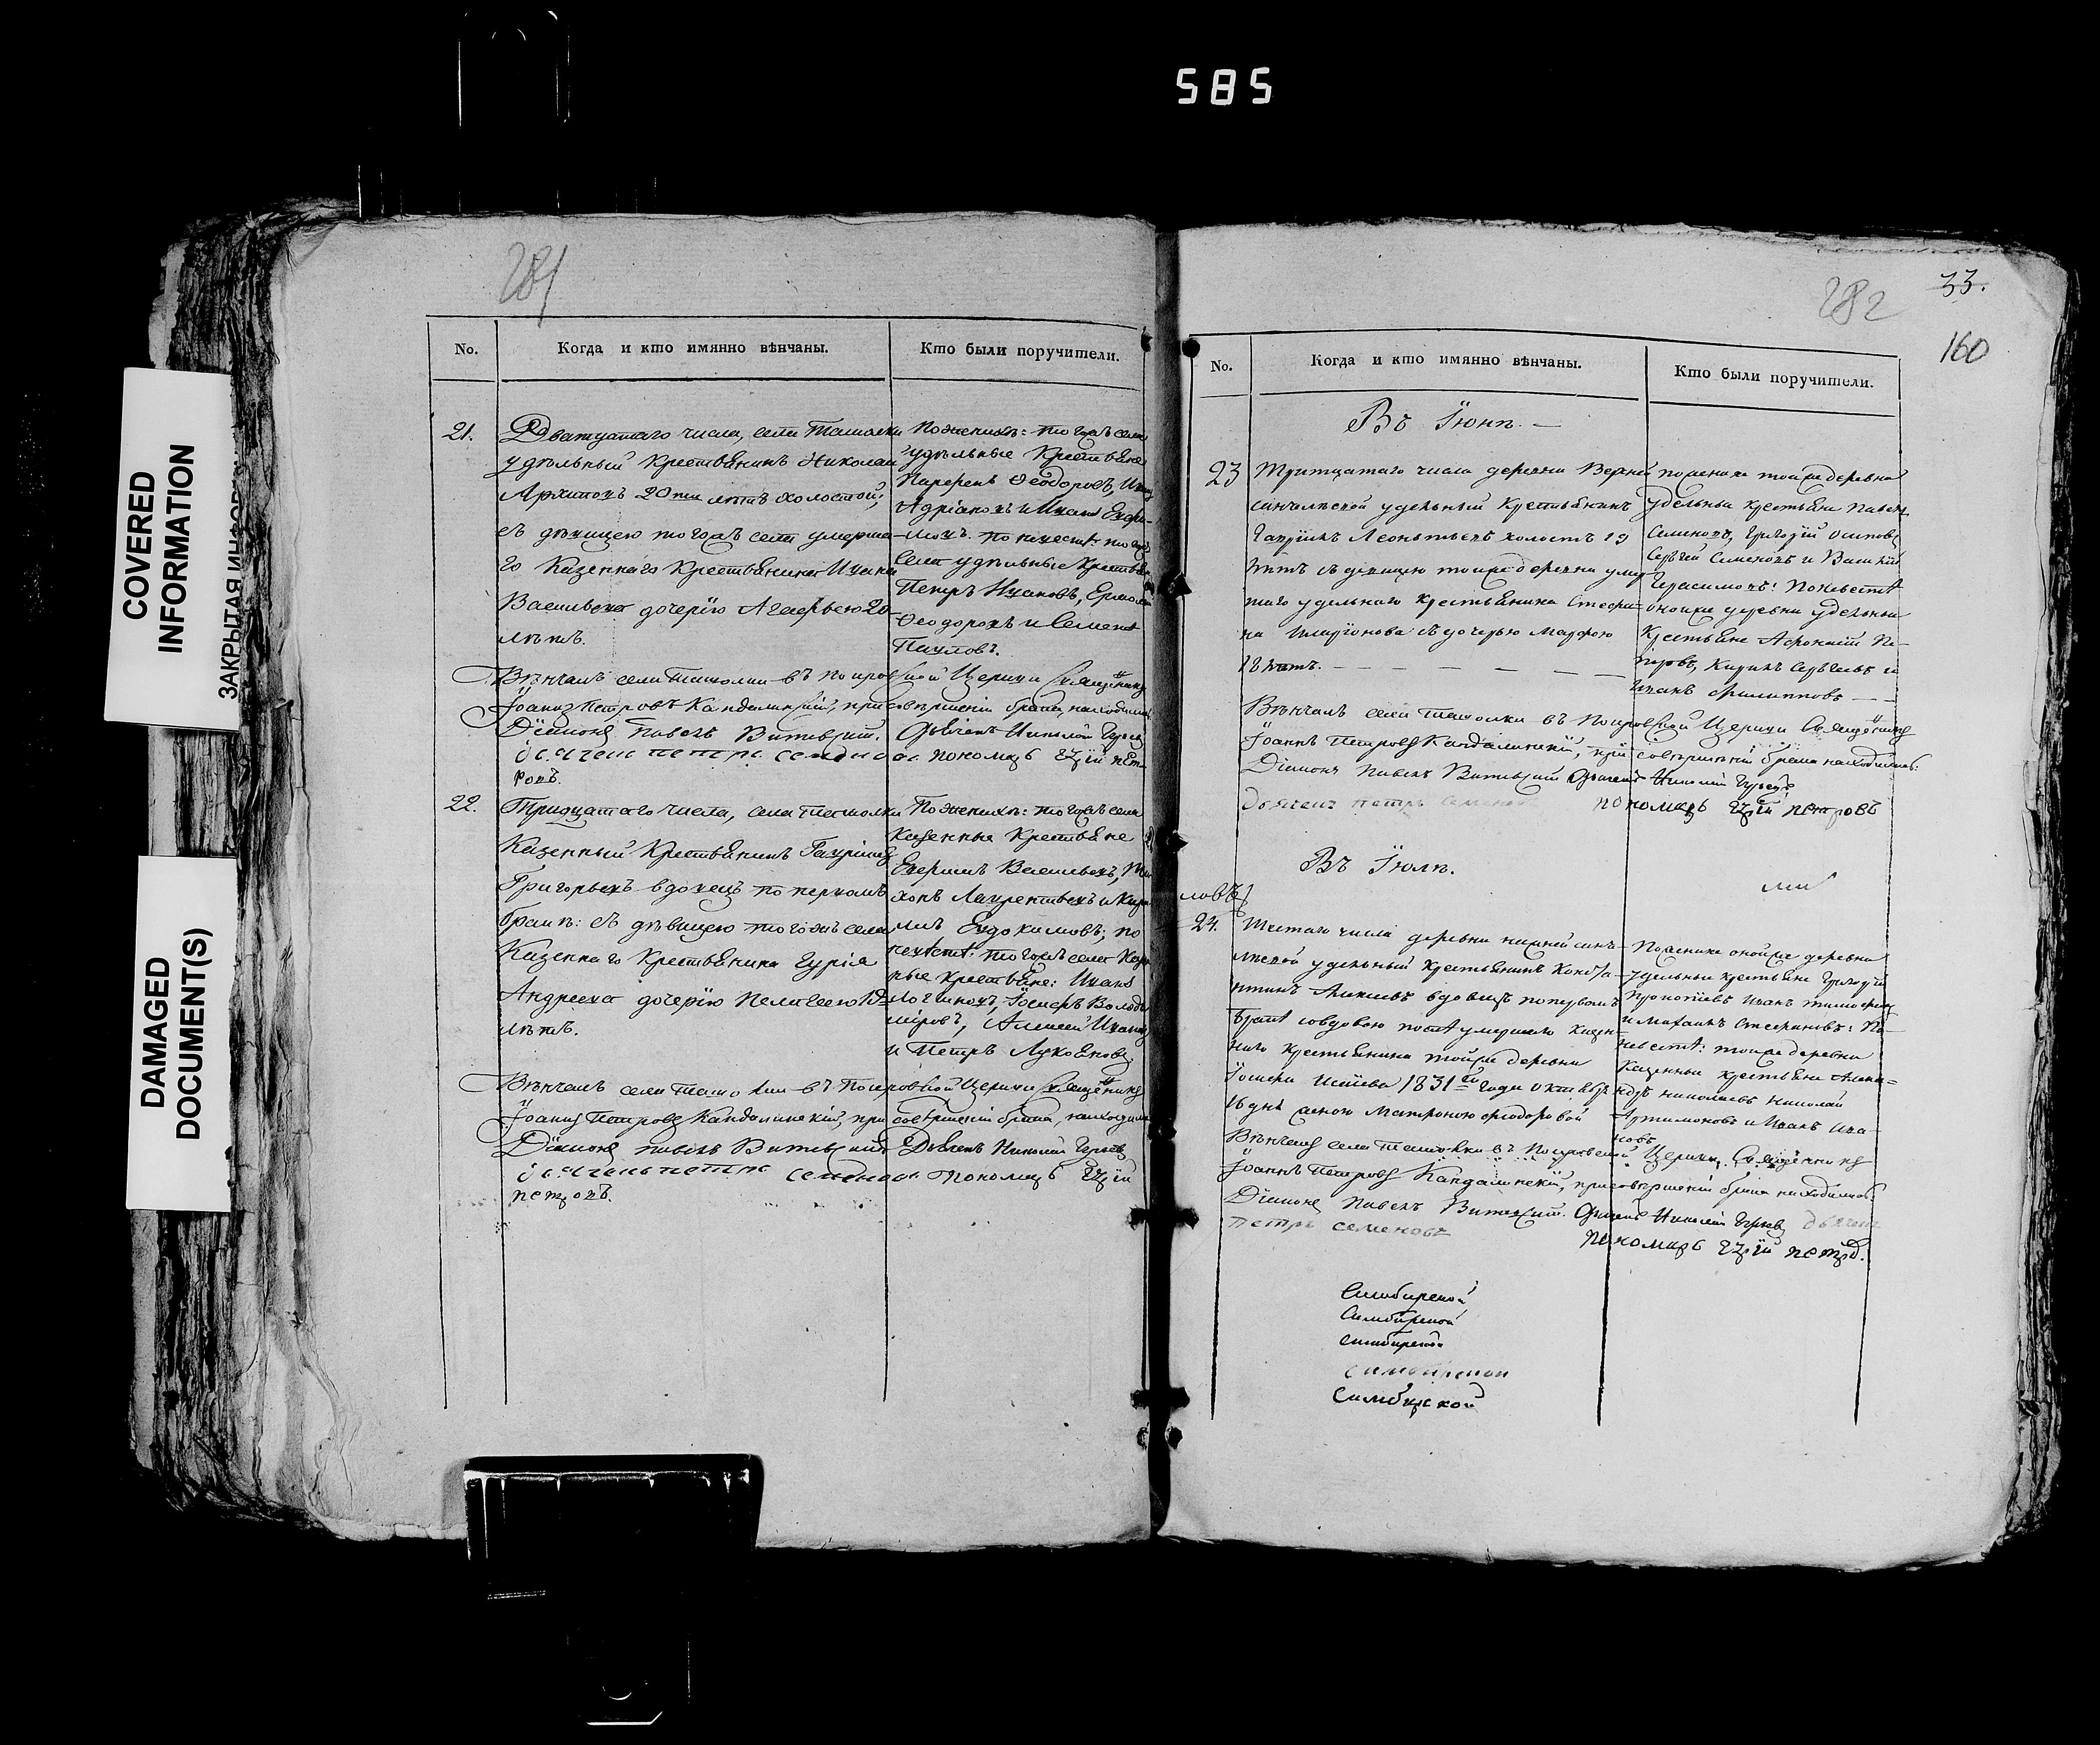 585
COVERED
INFORMATION
DAMAGED
DOCUMENT(S)
281
No.
Когда и кто имянно вѣнчаны.
Кто были поручители.
21.
Дватцатаго числа, села Ташолки
удѣльный крестьянинъ Николай
Архиповъ 20ти лѣтъ холостой;
съ дѣвицею тогожъ села умерша-
го Казеннаго Крестьянина Ивана
Васильева дочерїю Агафьею 20
лѣтъ.
По женихѣ: тогожъ села
удѣльные Крестьяне
Ѳеодоровъ,
Адрїановъ и Иванъ Ефре-
мовъ. по невестѣ: тогожъ
села удѣльные Крестьяне
Петръ Ивановъ, Ермолай
Ѳеодоровъ и Семенъ
Павловъ.
Вѣнчалъ села Ташолки въ Покровской Церкви Священникъ
Іоаннъ Петровъ Кандалинскїй, при совершенїи брака, находились
Дїаконъ Павелъ Витевскїй. Дьячекъ Николай Гурьевъ
дьячекъ петръ семеновъ пономарь
петровъ.
22.
Тритцатаго числа, села Ташолки
Казенный Крестьянинъ Гаврїилъ
Григорьевъ вдовецъ по первомъ
бракѣ: съ дѣвицею тогожъ села
Казеннаго Крестьянина Гурїя
Андреева дочерїю Пелагеею 19
лѣтъ.
По женихѣ: тогожъ села
Казенные Крестьяне
Ефремъ Васильевъ,
Лаврентьевъ и
Евдокимовъ; по
невѣстѣ: тогожъ села Казен
ные Крестьяне: Иванъ
Логиновъ, Іосифъ Володи
мїровъ, Алексей Ивановъ
и Петръ Лукояновъ.
Вѣнчалъ села Ташолки въ Покровской Церкви Священникъ
Іоаннъ Петровъ Кандалинскїй, при совершенїи брака, находились
Дїаконъ Павелъ Витевскїй Дьячекъ Николай Гурьевъ
дьячекъ петръ семеновъ пономарь
петровъ.
282
33.
160
No.
Когда и кто имянно вѣнчаны.
Кто были поручители.
Въ Їюнѣ.
23
Тритцатаго числа деревни Верхней
удельный Крестьянинъ
Гаврїилъ Леонтьевъ холостъ 19
лѣтъ съ дѣвицею тойже деревни умер
шаго удельнаго крестьянина Стефа-
на Иларїонова съ дочерью Марфою
18 лѣтъ.
по женихе тойже деревни
удельныя крестьяне Павелъ
Семеновъ, Григорїй Осиповъ
Сергѣй Семеновъ и Василїй
Герасимовъ: По невестѣ
онойже деревни удельныя
Крестьяне Афонасїй Пе-
тровъ, Кирилъ Сергѣевъ и
Иванъ Филипповъ
Вѣнчалъ села Ташолки въ Покровской Церкви Священникъ
Іоаннъ Петровъ Кандалинскїй, при совершенїи брака находились:
Дїаконъ Павелъ Витевскїй Дьячекъ Николай Гурьевъ
дьячекъ петръ семеновъ пономарь петровъ
Въ Їюлѣ.
24.
Шестаго числа деревни нижней
удельный крестьянинъ Конста-
нтинъ Алексѣевъ вдовецъ по первомъ
бракѣ со вдовою послѣ умершаго казен-
наго крестьянина тойже деревни
Іосифа 1831го года октября
16 дня женою Матроною Феодоровой
По женихе онойже деревни
удельныя крестьяне Григорїй
Прокопїевъ Иванъ Тимофеевъ
и Михаилъ Стефановъ: По
невестѣ: тойже деревни
Казенныя крестьяне Алекса-
ндръ Николаевъ Николай
Артимоновъ и Иванъ Ива-
новъ
Вѣнчалъ села Ташолки въ Покровской Церкви, Священникъ
Іоаннъ Петровъ Кандалинскїй, при совершенїи брака находились:
Дїаконъ Павелъ Витевскїй. Дьячекъ Николай Гурьевъ дьячекъ
петръ семеновъ
пономарь
Симбирской
Симбирской
Симбирской
Симбирской
Симбирской